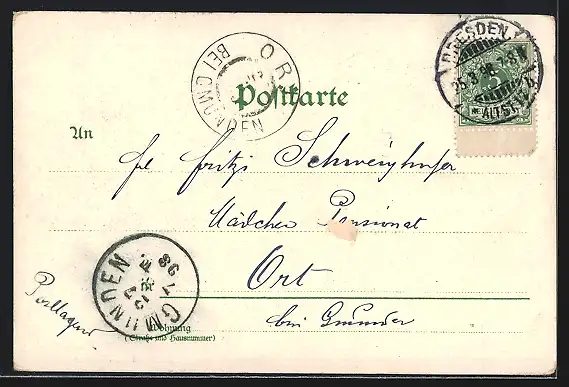 DRESDEN
ORT
BEI GMUNDEN
Postkarte
An
Schweighofer
Mädchen Pensionat
Ort
bei Gmunden
GMUNDEN
98
Postlagernd
Wohnung
(Straße und Hausnummer)